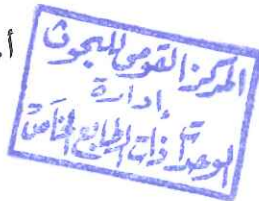 أ.
المركز القومى للبحوث
إدارة
الوحدات ذات الطابع الخاص